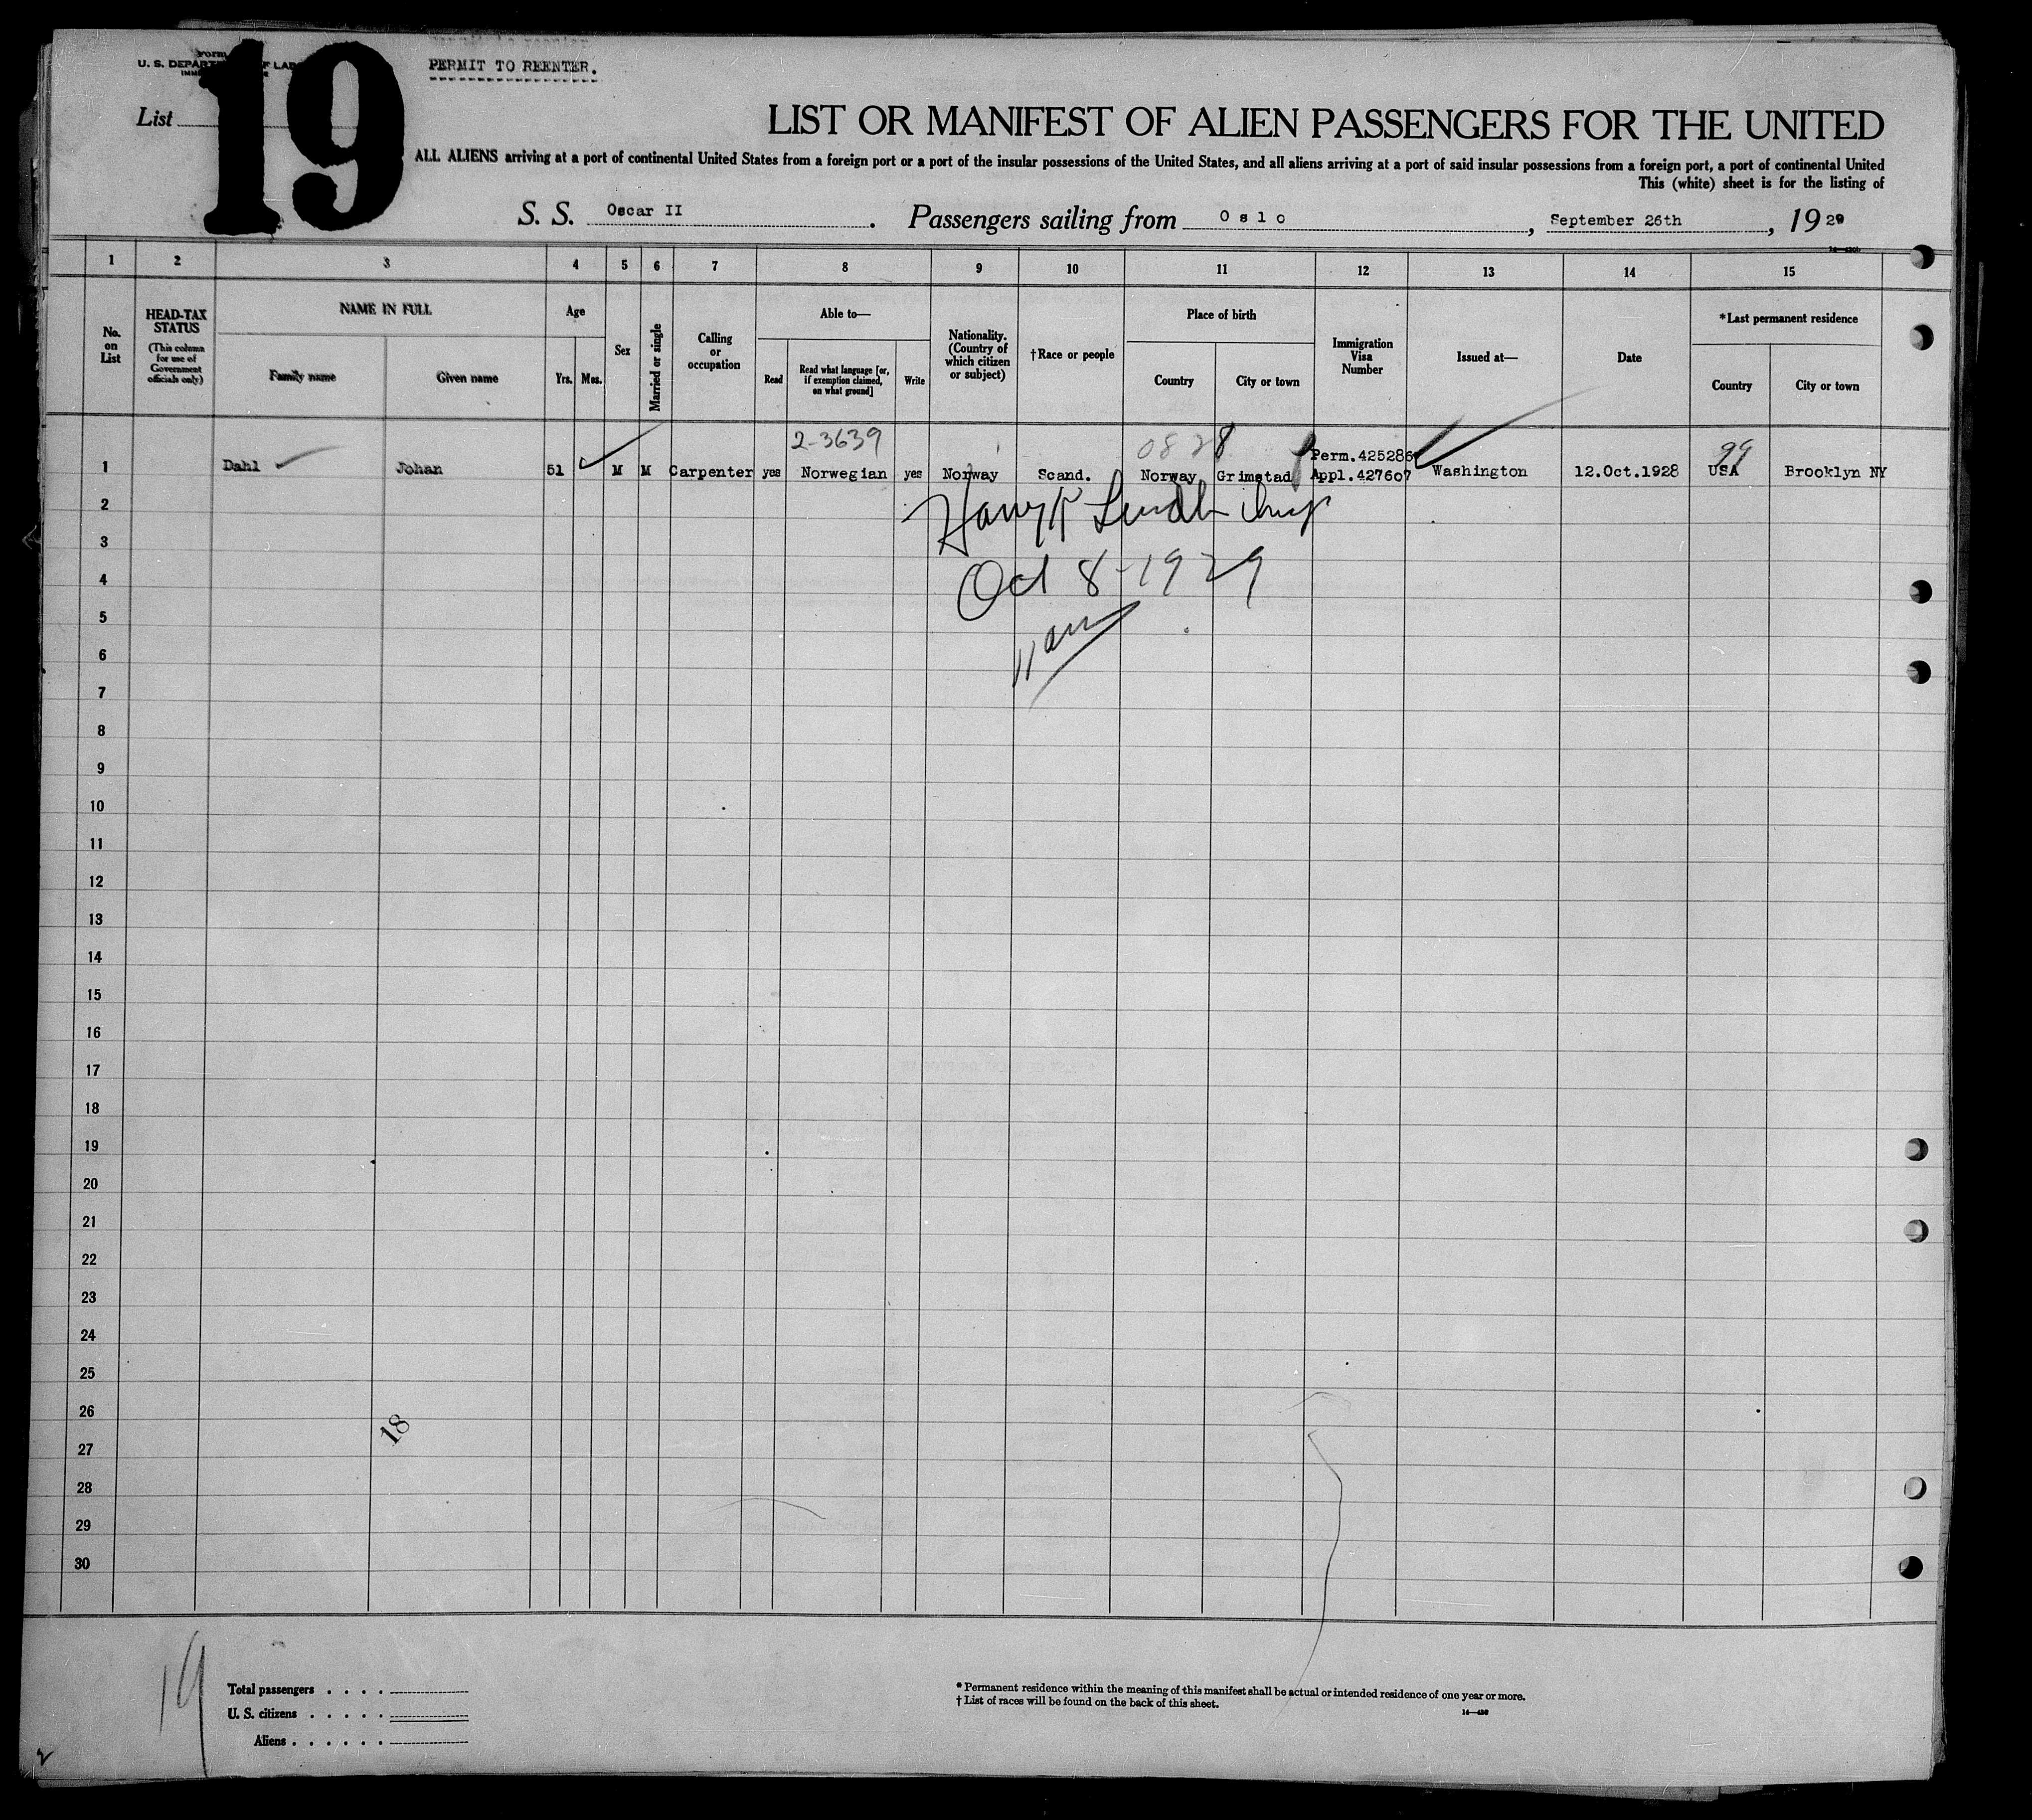 Form
U. S. DEPART OF LAB
IMM
PERMIT TO REENTER.
List
19
LIST OR MANIFEST OF ALIEN PASSENGERS FOR THE UNITED
ALL ALIENS arriving at a port of continental United States from a foreign port or a port of the insular possessions of the United States, and all aliens arriving at a port of said insular possessions from a foreign port, a port of continental United
This (white) sheet is for the listing of
S. S. Oscar II. Passengers sailing from Oslo, September 26th, 1929
1 2 3 4 5 6 7 8 9 10 11 12 13 14 15
No. on List
HEAD-TAX STATUS
(This column for use of Government officials only)
NAME IN FULL
Family name
Given name
Age
Yrs. Mos.
Sex
Married or single
Calling or occupation
Able to—
Read
Read what language [or, if exemption claimed, on what ground]
Write
Nationality. (Country of which citizen or subject)
†Race or people
Place of birth
Country
City or town
Immigration Visa Number
Issued at—
Date
*Last permanent residence
Country
City or town
2-3639
99
Perm.425286
1 Dahl Johan 51 M M Carpenter yes Norwegian yes Norway Scand. Norway Grimstad Appl.427607 Washington 12.Oct.1928 USA Brooklyn NY
2
3
Oct 8-1929
4
5
11 am
6
7
8
9
10
11
12
13
14
15
16
17
18
19
20
21
22
23
24
25
26
18
27
28
29
30
19
Total passengers . . . .
U. S. citizens . . . . .
Aliens . . . . . .
* Permanent residence within the meaning of this manifest shall be actual or intended residence of one year or more.
† List of races will be found on the back of this sheet.
14—430